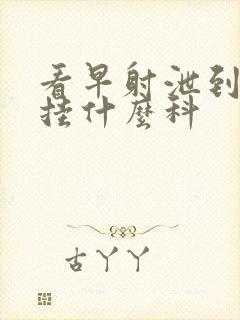 看早射泄到
挂什麼科
古丫丫